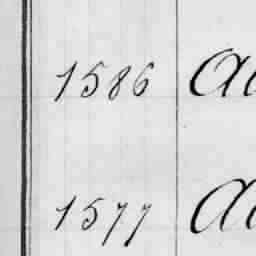 1586
1577